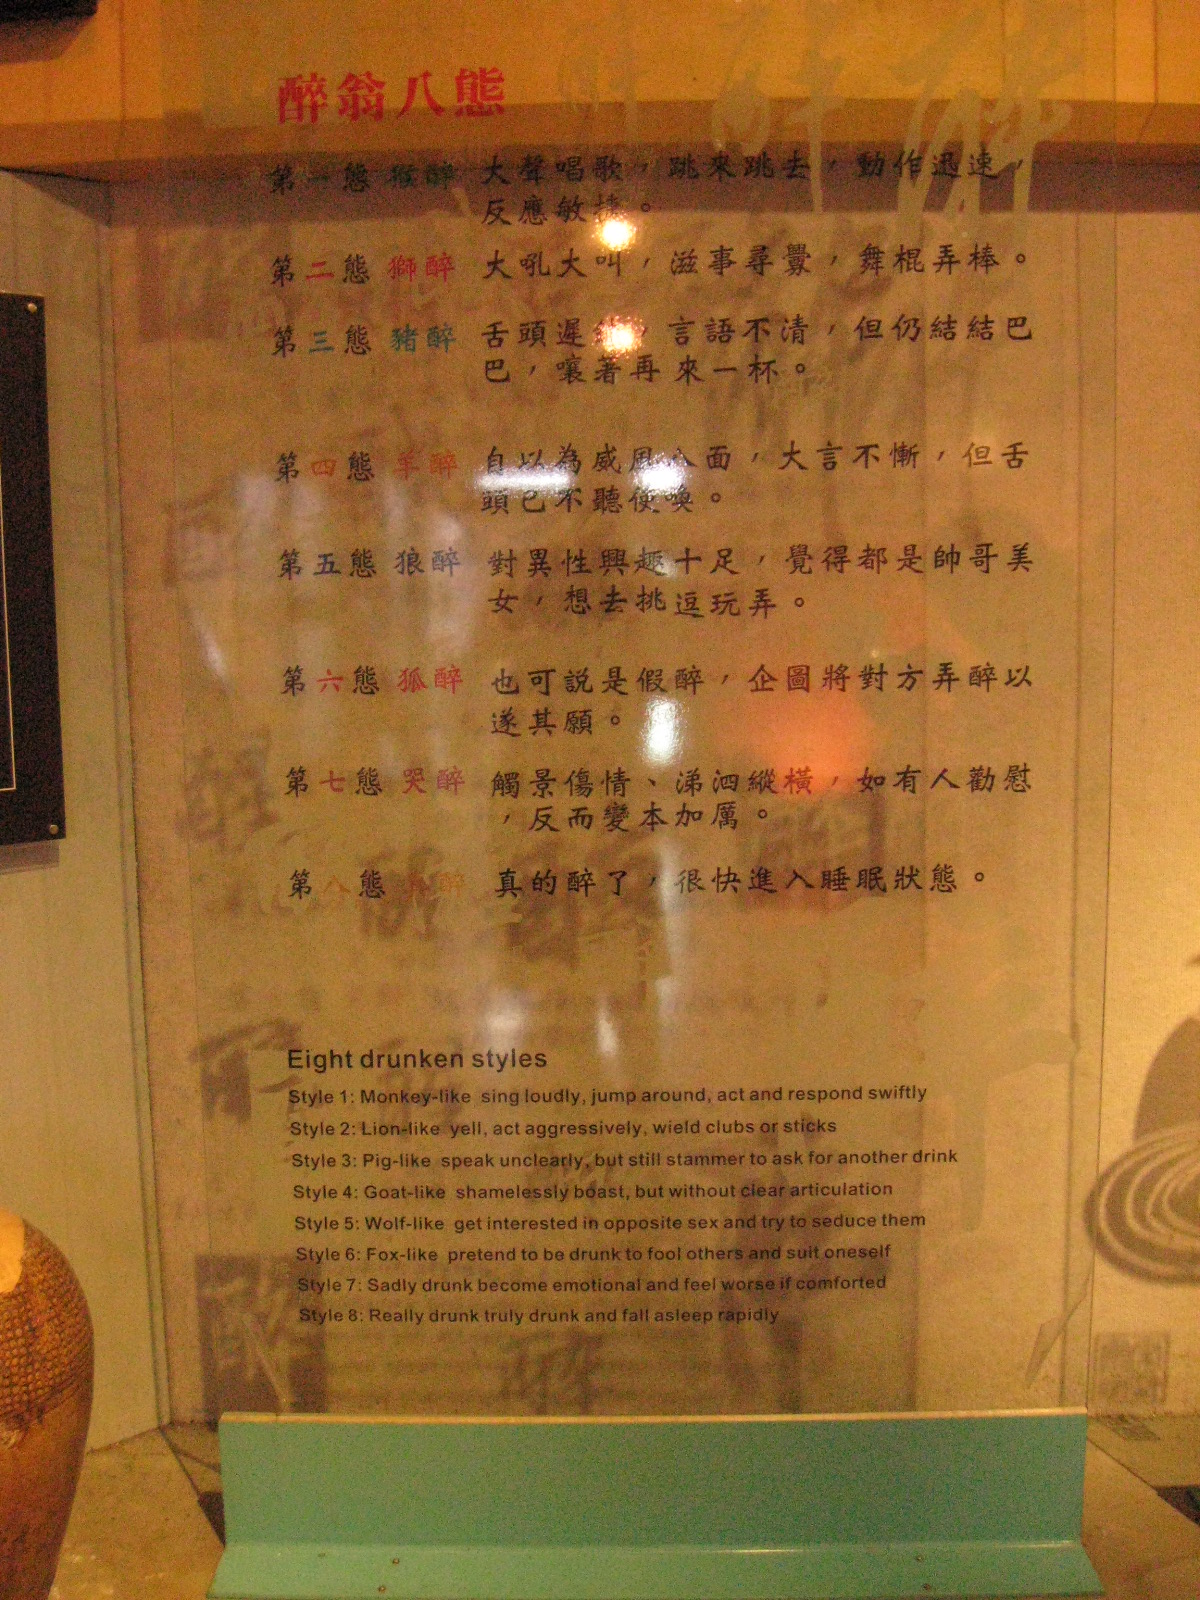 醉翁八態
第一態 猴醉 大聲唱歌，跳來跳去，動作迅速，
反應敏捷。
第二態 獅醉 大吼大叫，滋事尋釁，舞棍弄棒。
第三態 豬醉 舌頭遲鈍，言語不清，但仍結結巴
巴，嚷著再來一杯。
第四態 羊醉 自以為威風八面，大言不慚，但舌
頭已不聽使喚。
第五態 狼醉 對異性興趣十足，覺得都是帥哥美
女，想去挑逗玩弄。
第六態 狐醉 也可說是假醉，企圖將對方弄醉以
遂其願。
第七態 哭醉 觸景傷情、涕泗縱橫，如有人勸慰
，反而變本加厲。
第八態 醉 真的醉了，很快進入睡眠狀態。
Eight drunken styles
Style 1: Monkey-like sing loudly, jump around, act and respond swiftly
Style 2: Lion-like yell, act aggressively, wield clubs or sticks
Style 3: Pig-like speak unclearly, but still stammer to ask for another drink
Style 4: Goat-like shamelessly boast, but without clear articulation
Style 5: Wolf-like get interested in opposite sex and try to seduce them
Style 6: Fox-like pretend to be drunk to fool others and suit oneself
Style 7: Sadly drunk become emotional and feel worse if comforted
Style 8: Really drunk truly drunk and fall asleep rapidly